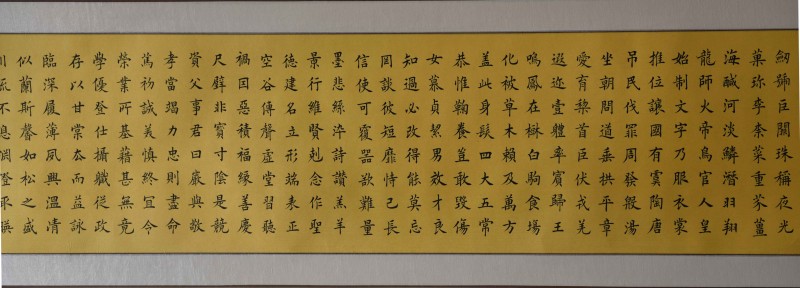 劒號巨闕珠稱夜光
菓珍李柰菜重芥薑
海鹹河淡鱗潛羽翔
龍師火帝鳥官人皇
始制文字乃服衣裳
推位讓國有虞陶唐
吊民伐罪周發殷湯
坐朝問道垂拱平章
愛育黎首臣伏戎羌
遐迩壹軆率賓歸王
鳴鳳在樹白駒食場
化被草木賴及萬方
盖此身髮四大五常
恭惟鞠養豈敢毀傷
女慕貞絜男效才良
知過必改得能莫忘
罔談彼短靡恃己長
信使可覆器欲難量
墨悲絲淬詩讚羔羊
景行維賢剋念作聖
德建名立形端表正
空谷傳聲虛堂習聽
禍因惡積福緣善慶
尺璧非寶寸陰是競
資父事君曰嚴與敬
孝當竭力忠則盡命
篤初誠美慎終宜令
榮業所基藉甚無竟
學優登仕攝職從政
存以甘棠去而益詠
臨深履薄夙興溫凊
似蘭斯馨如松之盛
川流不息淵澄取暎